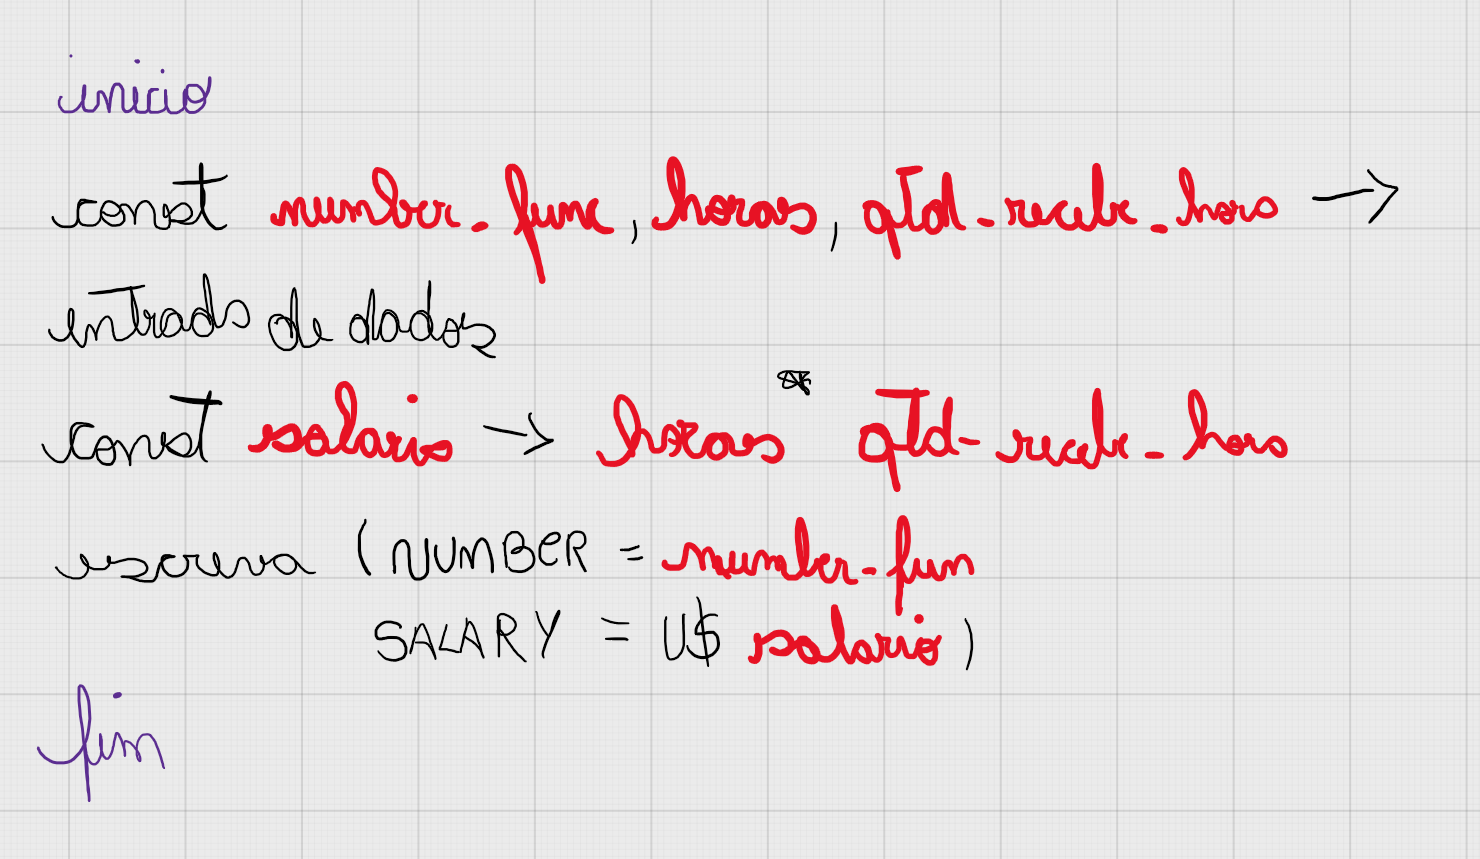 inicio
const number_func, horas, qtd_recebe_hora →
entrada de dados
const salario → horas * qtd_recebe_hora
escreva (NUMBER = number_fun
SALARY = U$ salario)
fim